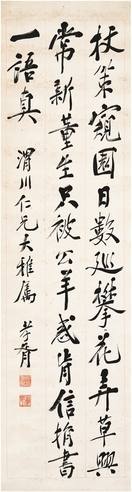 杖策窺園日數巡攀花弄草興
常新董生只被公羊惑肯信捐書
一語真 渭川仁兄大雅屬 孝胥